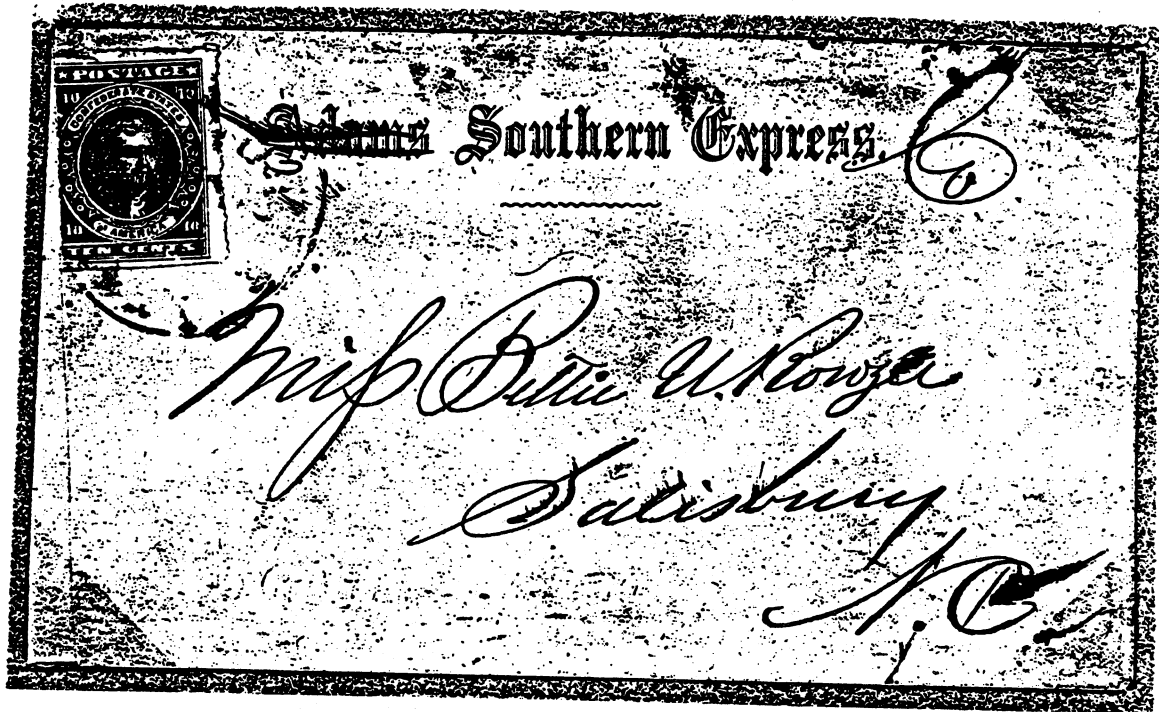 POSTAGE
10 10
CONFEDERATE STATES
OF AMERICA
10 10
TEN CENTS
Adams Southern Express. Co
Miss Bettie U. Rowzer
Salisbury
N. C.